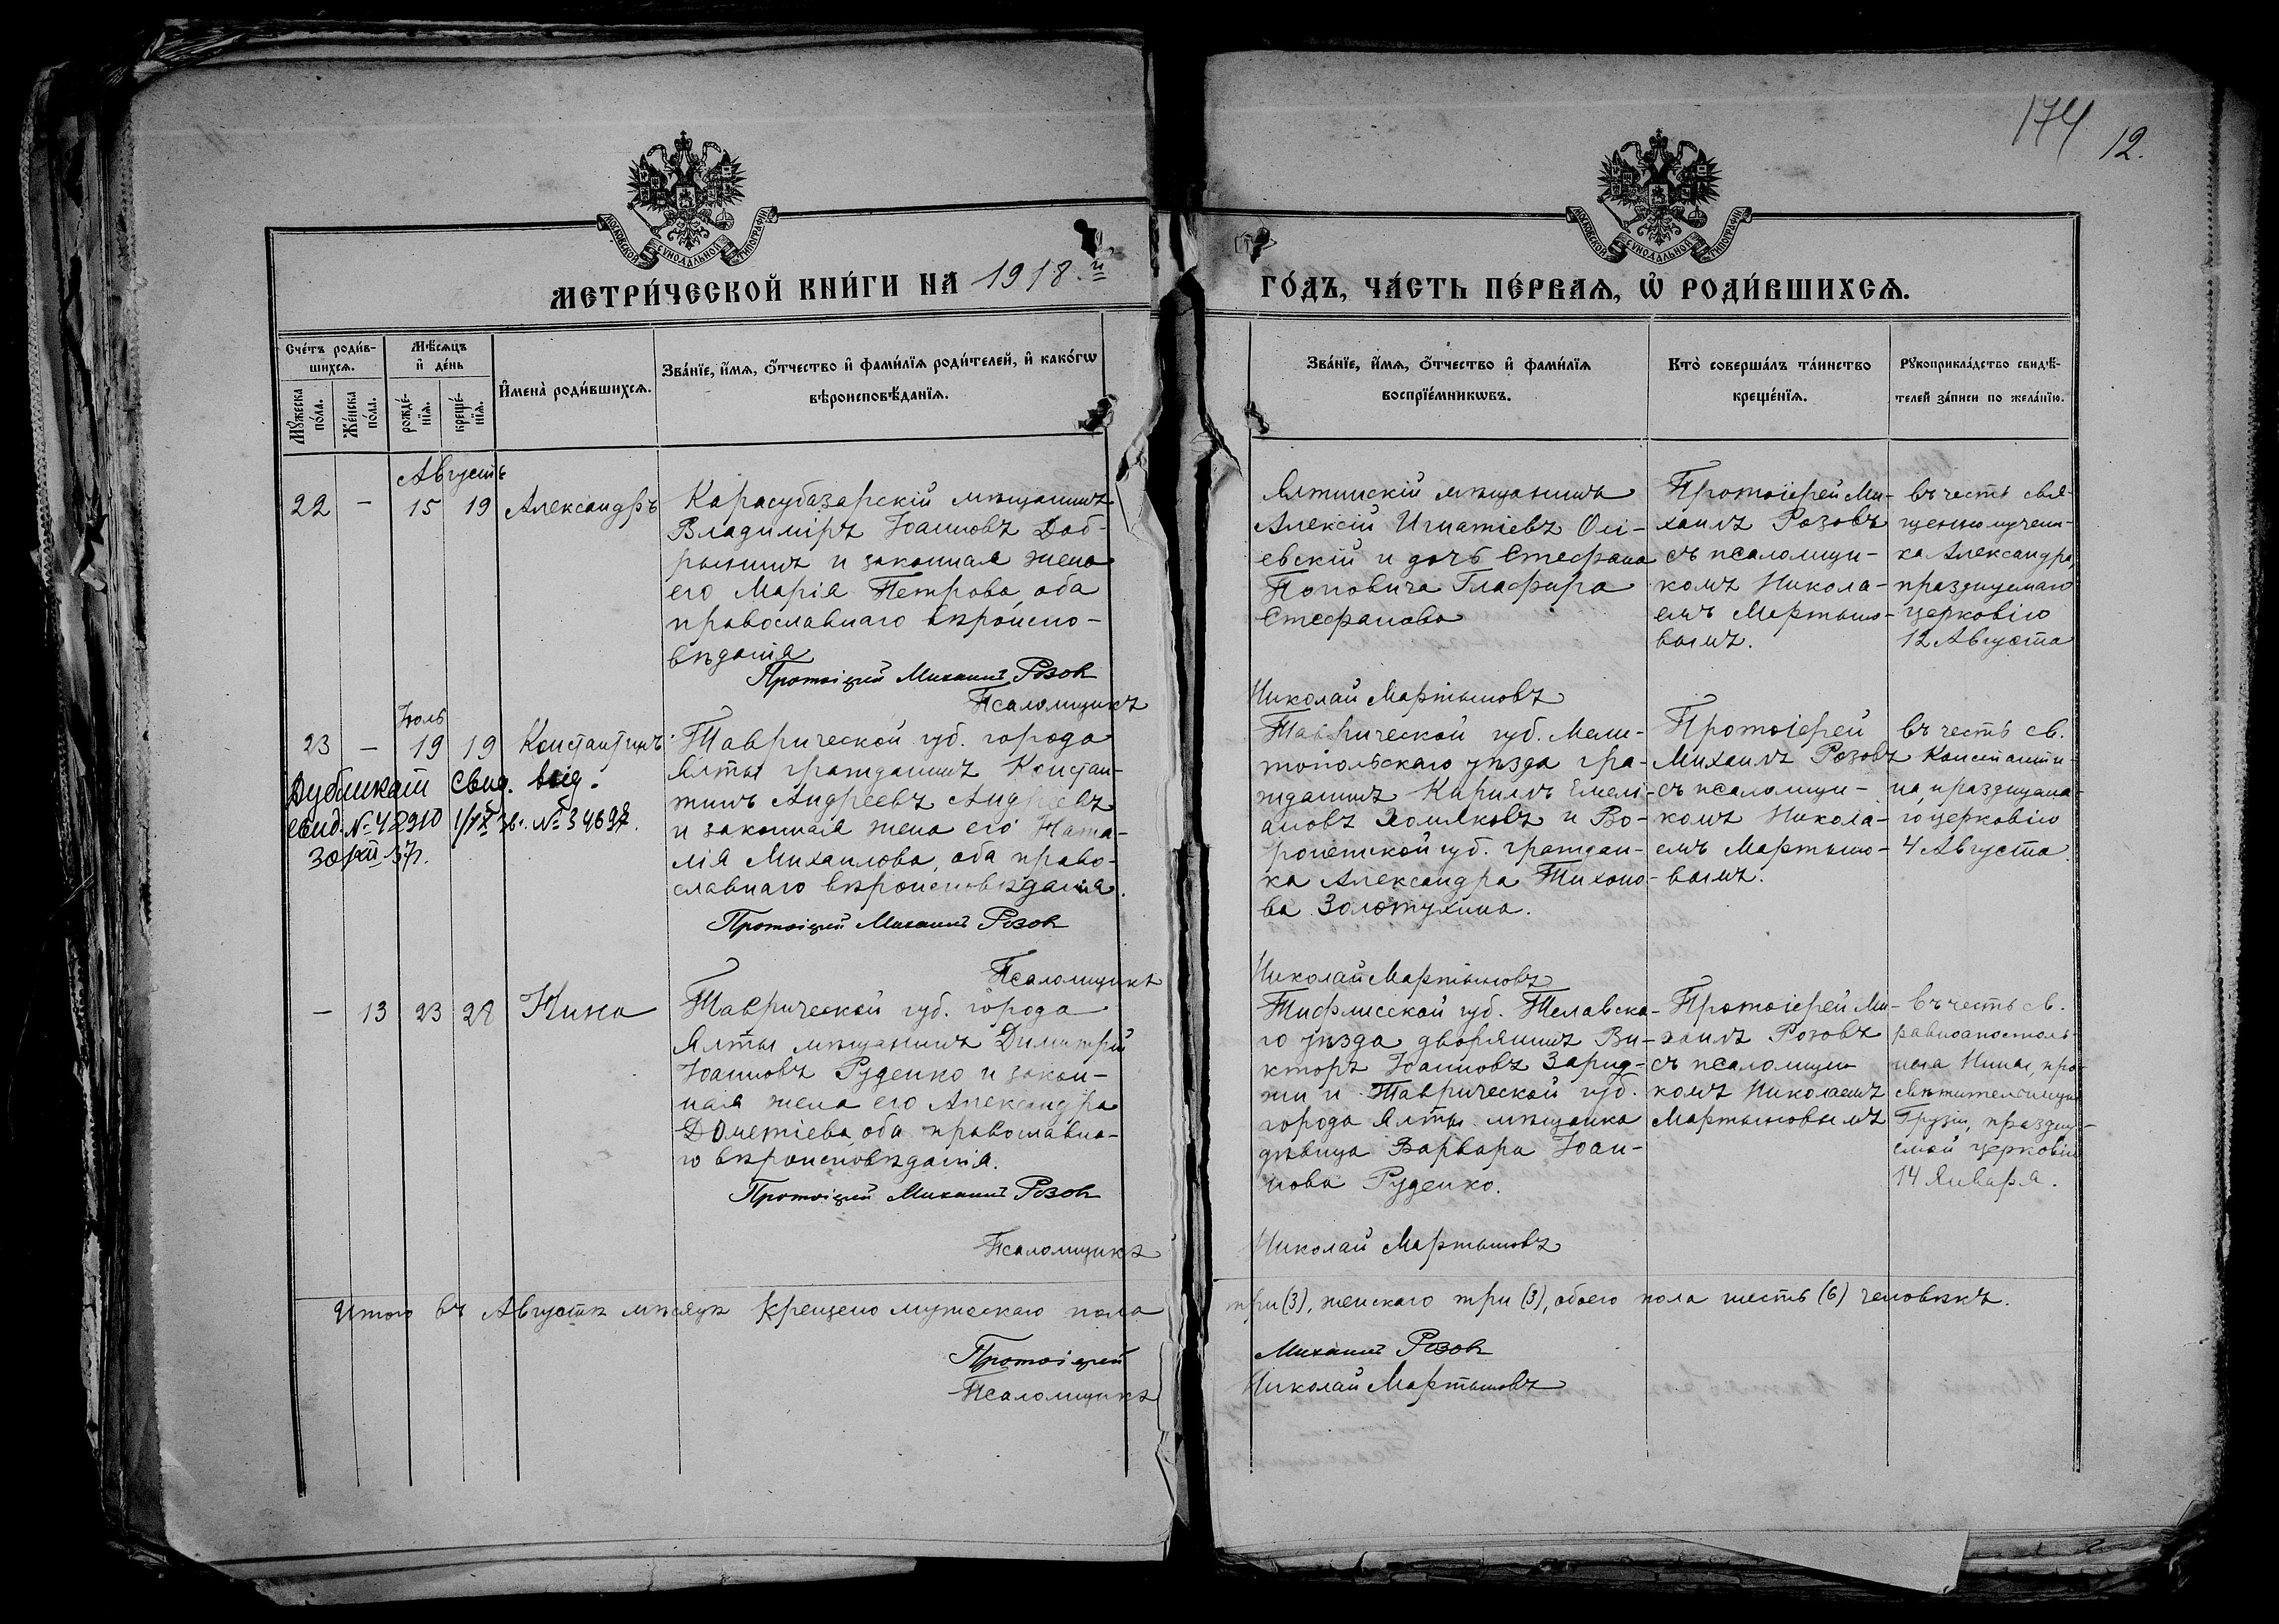 174 12.
МОСКОВСКОЙ СѴНОДАЛЬНОЙ ТИПОГРАФІИ
МОСКОВСКОЙ СѴНОДАЛЬНОЙ ТИПОГРАФІИ
МЕТРИ́ЧЕСКОЙ КНИ́ГИ НА 1918.й
ГО́ДЪ, ЧА́СТЬ ПЕ́РВАЯ, Ѡ РОДИ́ВШИХСЯ.
Сче́тъ роди́в-
шихся.
Му́жеска
по́ла.
Же́нска
по́ла.
Мѣ́сяцъ
и де́нь
рожде́-
нїя.
креще́-
нїя.
Имена̀ роди́вшихся.
Зва́нїе, и́мя, о́тчество и фами́лїя роди́телей, и како́гѡ
вѣроисповѣ́данїя.
Зва́нїе, и́мя, о́тчество и фами́лїя
воспрїе́мникѡвъ.
Кто̀ соверша́лъ та́инство
креще́нїя.
Рукоприкла́дство свидѣ́-
телей за́писи по жела́нїю.
Августъ
22 – 15 19 Александръ
Карасубазарскій мѣщанинъ
Владиміръ Іоанновъ Доб-
рынинъ и законная жена
его Марія Петрова, оба
православнаго вѣроиспо-
вѣданія
Протоіерей Михаилъ Розов
Псаломщикъ
Ялтинскій мѣщанинъ
Алексій Игнатіевъ Олі-
евскій и дочь Стефана
Поповича Глафира
Стефанова
Николай Мартыновъ
Протоіерей Ми-
хаилъ Розовъ
съ псаломщи-
комъ Никола-
емъ Мартыно-
вымъ.
въ честь свя-
щенномучени-
ка Александра,
празднуемаго
церковію
12 Августа
Іюль
23 – 19 19 Константинъ
Дубликат Свид. выд.
свид. № 42910 № 34697.
37г.
Таврической губ. города
Ялты гражданинъ Констан-
тинъ Андреевъ Андреевъ
и законная жена его Ната-
лія Михаилова, оба право-
славнаго вѣроисповѣданія.
Протоіерей Михаилъ Розов
Псаломщикъ
Таврической губ. Мели-
топольскаго уѣзда гра-
жданинъ Кириллъ Емели-
ановъ Хомяковъ и Во-
ронежской губ. граждан-
ка Александра Тихоно-
ва Золотухина.
Николай Мартыновъ
Протоіерей
Михаилъ Розовъ
съ псаломщи-
комъ Никола-
емъ Мартыно-
вымъ.
въ честь св.
Константи-
на, празднуема-
го церковію
4 Августа.
– 13 23 28 Нина
Таврической губ. города
Ялты мѣщанинъ Димитрій
Іоанновъ Руденко и закон-
ная жена его Александра
Дометіева, оба православна-
го вѣроисповѣданія.
Протоіерей Михаилъ Розов
Псаломщикъ
Тифлисской губ. Телавска-
го уѣзда дворянинъ Ви-
кторъ Іоанновъ Зарид-
жи и Таврической губ.
города Ялты мѣщанка
дѣвица Варвара Іоан-
нова Руденко.
Николай Мартыновъ
Протоіерей Ми-
хаилъ Розовъ
съ псаломщи-
комъ Николаемъ
Мартыновымъ
въ честь св.
равноапостоль-
ныя Нины, про-
свѣтительницы
Грузіи, праздну-
емой церковію
14 Января.
Итого въ Августѣ мѣсяцѣ крещено мужескаго пола три (3), женскаго три (3), обоего пола шесть (6) человѣкъ.
Протоіерей Михаилъ Розов
Псаломщикъ Николай Мартыновъ